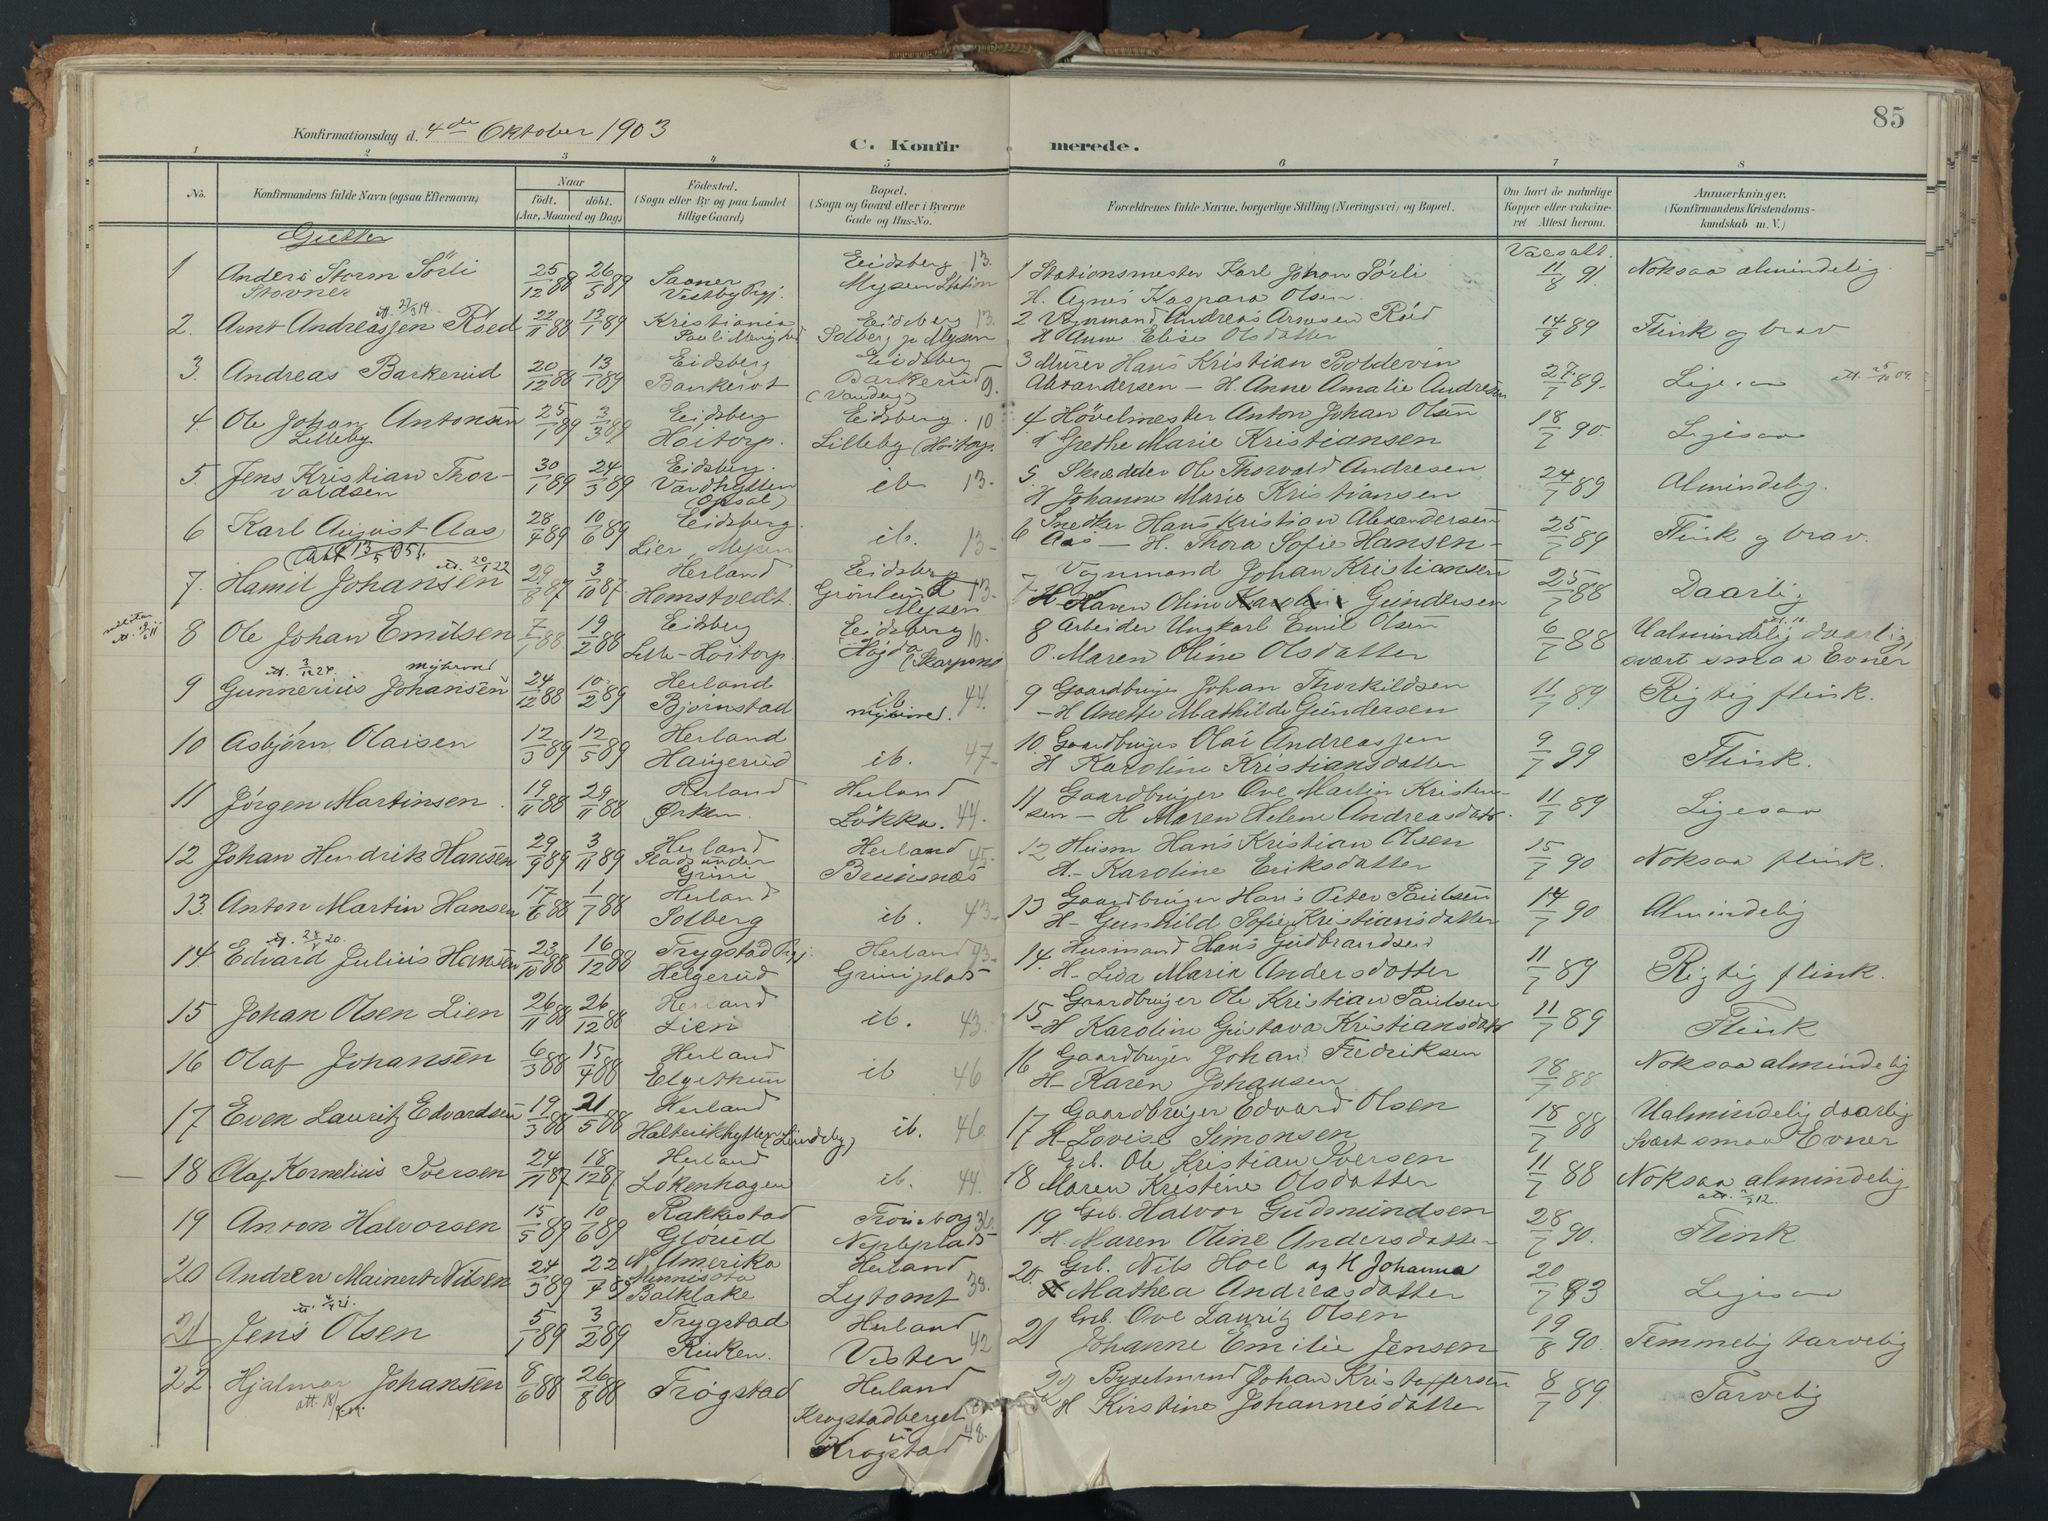 85
Konfirmationsdag d. 4de Oktober 1903
C. Konfirmerede.
1 2 3 4 5 6 7 8
No. Konfirmandens fulde Navn (ogsaa Efternavn) Naar født. døbt. (Aar, Maaned og Dag) Födested. (Sogn eller By og paa Landet tillige Gaard) Bopæl. (Sogn og Gaard eller i Byerne Gade og Hus-No. Forældrenes fulde Navne, borgerlige Stilling (Næringsvei) og Bopæl. Om havt de naturlige Kopper eller vaccineret Attest herom. Anmærkninger. (Konfirmandens Kristendomskundskab m. V.)
Gutter
1 Anders Storm Sörli 25/12 88 26/5 89 Saaner Eidsberg 13. 1 Stationsmester Karl Johan Sörli 11/8 91. Noksaa almindelig
Stovner Vestby Prgj. Mysen Station H. Agnes Kaspara Olsen.
2. Arnt Andreassen Röed 22/11 88 13/1 89 Kristiania Eidsberg 13. 2 Vognmand Andreas Arnesen Röed 14/9 89 Flink og brav
Solberg pr Mysen H Anne Elise Olsdatter
3. Andreas Barkerud 20/12 88 13/1 89 Eidsberg Eidsberg 3 Murer Hans Kristian Boldevin 27/7 89. Ligesaa
Barkerud 9. Alexandersen – H. Anne Amalie Andresen
4. Ole Johan Antonsen 25/1 89 3/3 89 Eidsberg Eidsberg. 10 4 Hövelmester Anton Johan Olsen 18/7 90. Ligesaa
Lilleby Hoitorp. Lilleby (Hoitorp. Grethe Marie Kristiansen
5. Jens Kristian Thor- 30/1 89 24/3 89 Eidsberg. ib 13. 5. Skrædder Ole Thorvald Andresen 24/7 89 Almindelig.
valdsen Vardhytten (Opsal) H Johanne Marie Kristiansen
6 Karl August Aas 28/4 89 10/6 89 Eidsberg. ib. 13 6 Snedker Hans Kristian Alexandersen 25/7 89 Flink og brav.
Lier, Mysen Aas – H. Thora Sofie Hansen –
7. Hamil Johansen 29/8 87 3/10 87. Herland Eidsberg 13 7 Vognmand Johan Kristiansen 25/7 88 Daarlig
Homstvedt. Grönlund Mysen H Karen Oline Karoline Gundersen
8 Ole Johan Emilsen 7/1 88 19/2 88 Eidsberg Eidsberg 10. 8 Arbeider Ungkarl Emil Olsen 6/7 88 Ualmindelig daarlig,
Lille-Hoitorp. Maren Oline Olsdatter svært smaa Evner
9 Gunnerius Johansen 24/12 88 10/2 89 Herland ib 44. 9 Gaardbruger Johan Thorkildsen 11/7 89. Rigtig flink.
Bjornstad H Anette Mathilde Gundersen
10 Asbjörn Olaisen 12/3 89 12/5 89 Herland ib. 47 10. Gaardbruger Olai Andreassen 9/7 99 Flink.
Haugerud H Karoline Kristiansdatter
11 Jörgen Martinsen 19/11 88 29/11 88 Herland Herland 11. Gaardbruger Ove Martin Kristen- 11/7 89 Ligesaa
Örken Lökka. 44. sen – H Maren Helene Andreasdatr.
12 Johan Hendrik Hansen 29/9 89 3/11 89 Herland Herland 45. 12 Husm Hans Kristian Olsen 15/7 90 Noksaa flink.
Grini H. Karoline Eriksdatter
13. Anton Martin Hansen 17/6 88 1/7 88 Herland ib. 43. 13 Gaardbruger Hans Peter Paulsen 14/7 90 Almindelig
Solberg H– Gunhild Sofie Kristiansdatter
14. Edvard Julius Hansen 23/10 88 16/12 88 Trygstad Prgj. Herland 43. 14. Husmand Hans Gudbrandsen 11/7 89 Rigtig flink.
Helgerud Griniplads H– Lisa Maria Andersdatter
15 Johan Olsen Lien 26/11 88 26/12 88 Herland ib. 43. 15 Gaardbruger Ole Kristian Paulsen 11/7 89 Flink
Lien H Karoline Gustava Kristiansdatr
16 Olaf Johansen 6/3 88 15/4 88 Herland ib 46 16 Gaardbruger Johan Fredriksen 18/7 88 Noksaa almindelig
Elgethun H– Karen Johansen
17 Even Lauritz Edvardsen 19/3 88 21/5 88 Herland ib. 46. 17 Gaardbruger Edvard Olsen 18/7 88 Ualmindelig daarlig
Halterikhytten (Lundeby) H– Lovise Simonsen Svært smaa Evner
18 Olaf Kornelius Iversen 24/11 87 18/12 87 Herland ib. 44. 18 Grb. Ole Kristian Iversen 11/7 88 Noksaa almindelig
Lokenhagen Maren Kristine Olsdatter
19 Anton Halvorsen 15/5 89 10/6 89 Rakkestad Trömborg 36. 19 Grb. Halvor Gudmundsen 28/7 90. Flink
H Maren Oline Andersdatter
20 Andrew Mainert Nilsen 24/3 89 22/4 89 N Amerika Herland 20. Grb. Nils Hoel og H Johanna 20/7 93 Ligesaa
Minnisota Balklake Lytomt 38. Mathea Andreasdatter
21 Jens Olsen 5/1 89 3/2 89 Trygstad Herland 42 21 Grb. Ove Lauritz Olsen 19/8 90. Temmelig tarvelig
Vister Johanne Emilie Jensen
22 Hjalmar Johansen 8/6 88 26/8 88 Trögstad Herland 22 Bysselmand Johan Kristoffersen 8/7 89. Tarvelig
Krogstadberget H Kirstine Johannesdatter
48. Krogstad